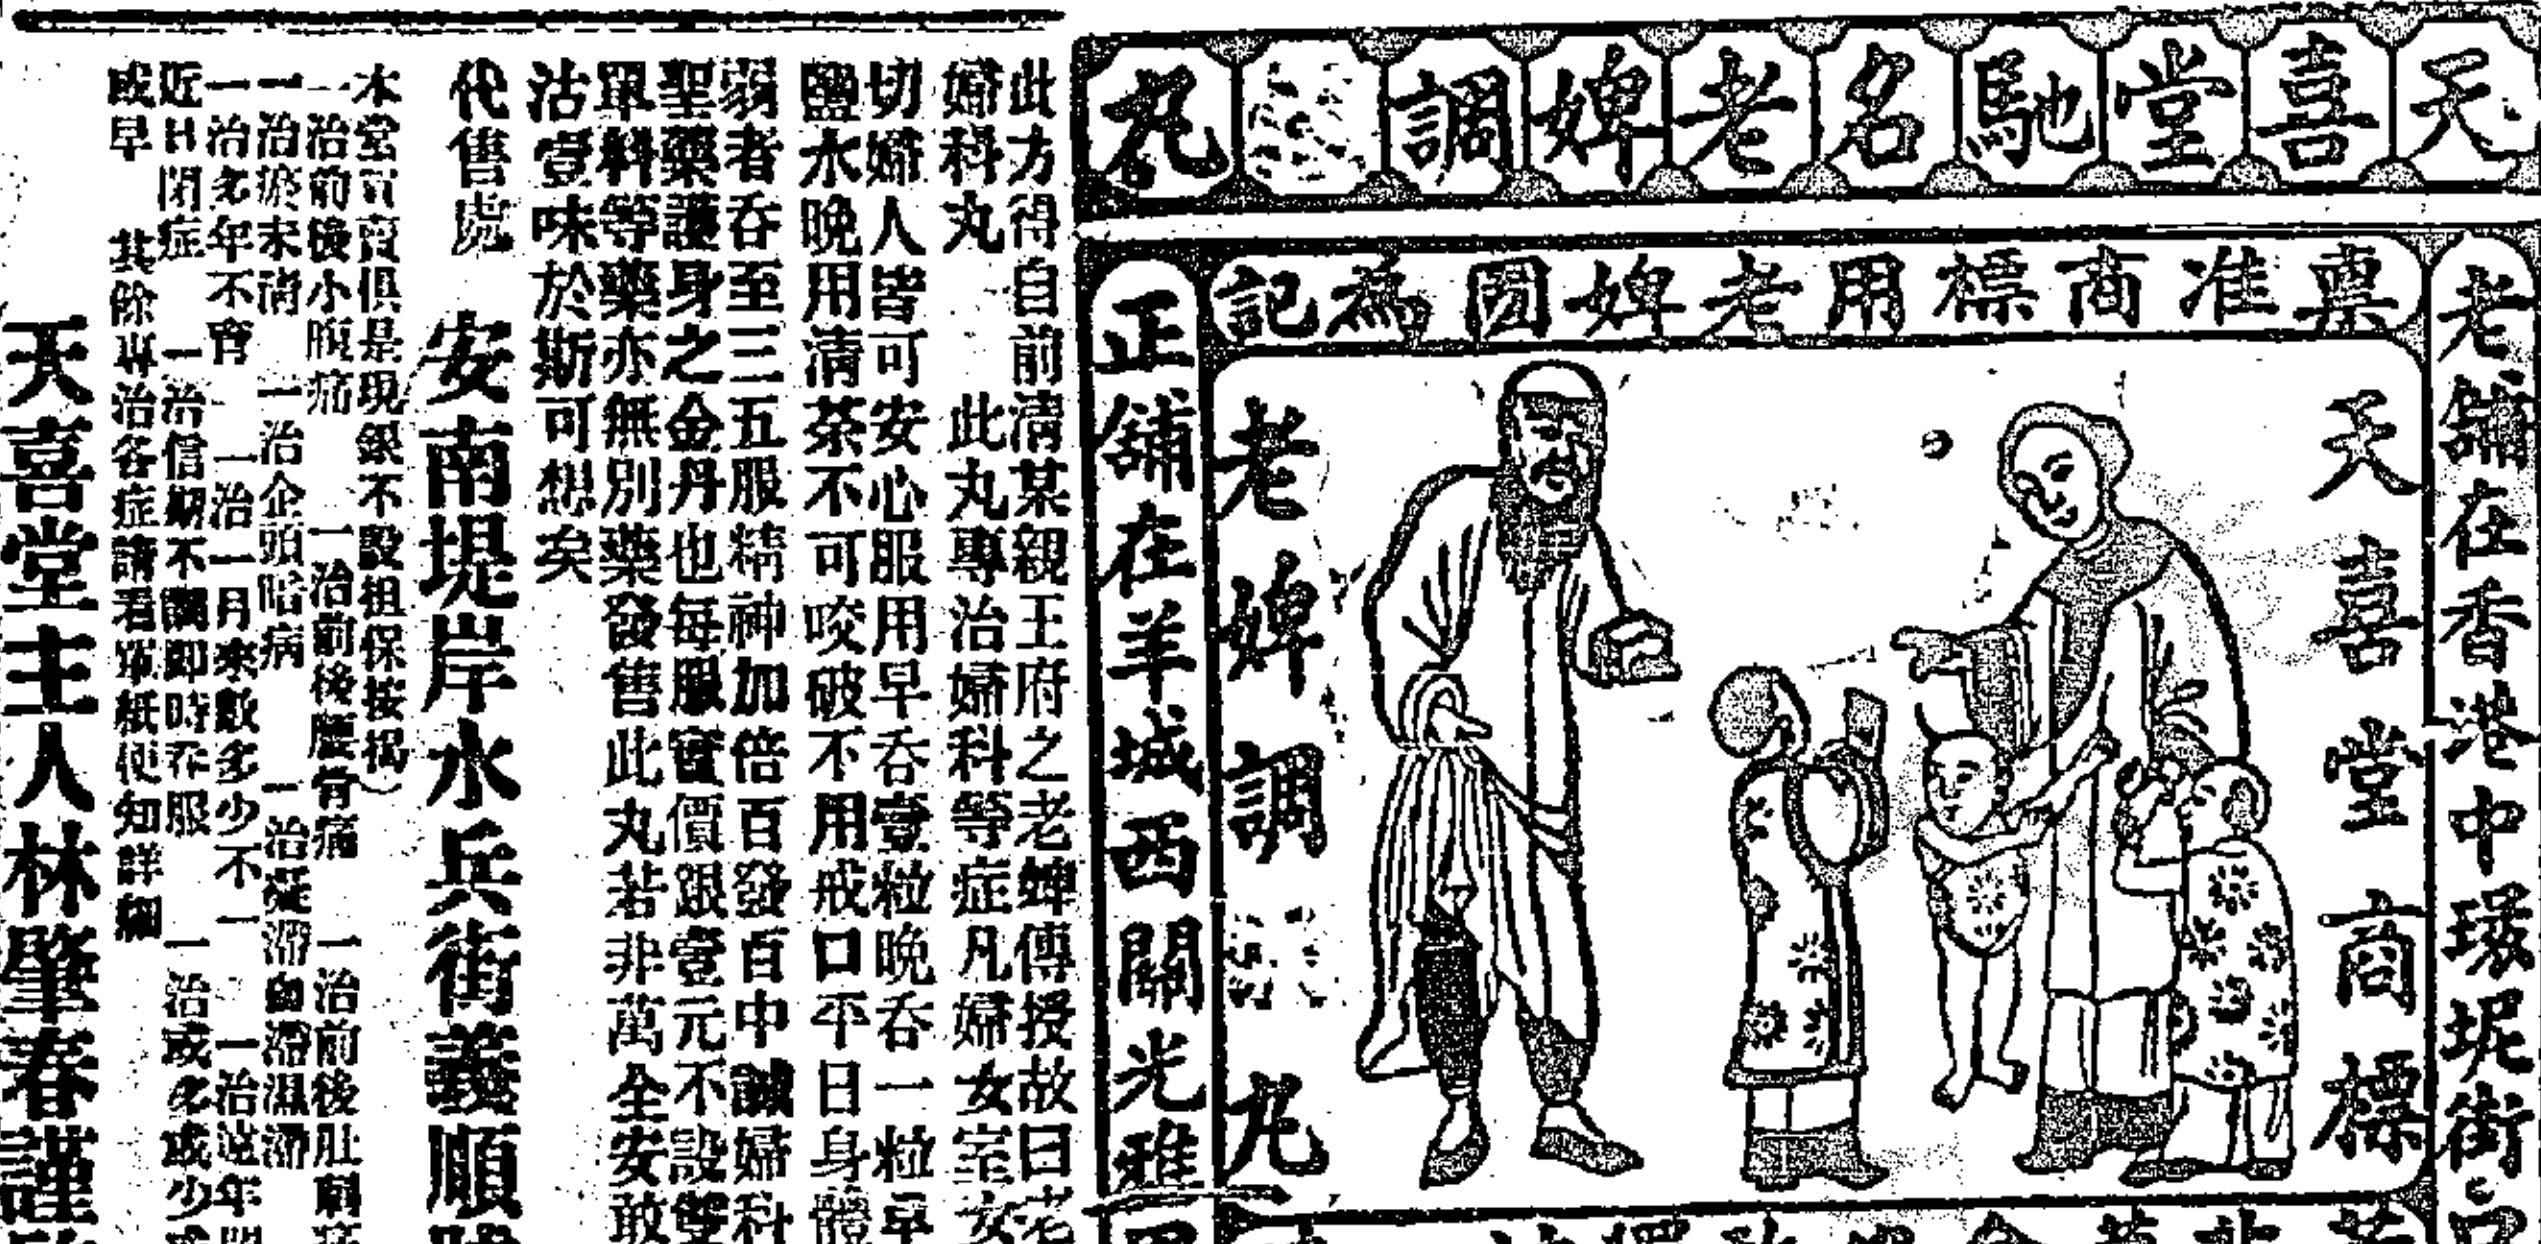 天喜堂馳名老婢調丸
稟准商標用老婢圖為記
老舖在香港中環坭街
天喜堂商標
老婢調丸
正舖在羊城西關光雅
此方得自前清某親王府之老婢傳授故曰老
婦科丸　此丸專治婦科等症凡婦女室女
切婦人皆可安心服用早吞壹粒晚吞一粒早
鹽水晚用清茶不可咬破不用戒口平日身體
弱者吞至三五服精神加倍百發百中誠婦科
聖藥護身之金丹也每服實價銀壹元不設雙
單料等藥亦無別藥發售此丸若非萬全安敢
沽壹味於斯可想矣
代售處　安南堤岸水兵街義順
本堂買賣俱是現銀不設租保按揭）
一治前後小腹痛　一治前後腰骨痛　一治前後肚痛
一治瘀未清　一治企頭暗病　一治凝滯白濁濕滯
一治多年不育　一治一月來數多少不一　一治遠年
近日閉症　一治信期不調即時吞服　一治或多或少或
或早　其餘專治各症請看單紙便知詳細
天喜堂主人林肇春謹